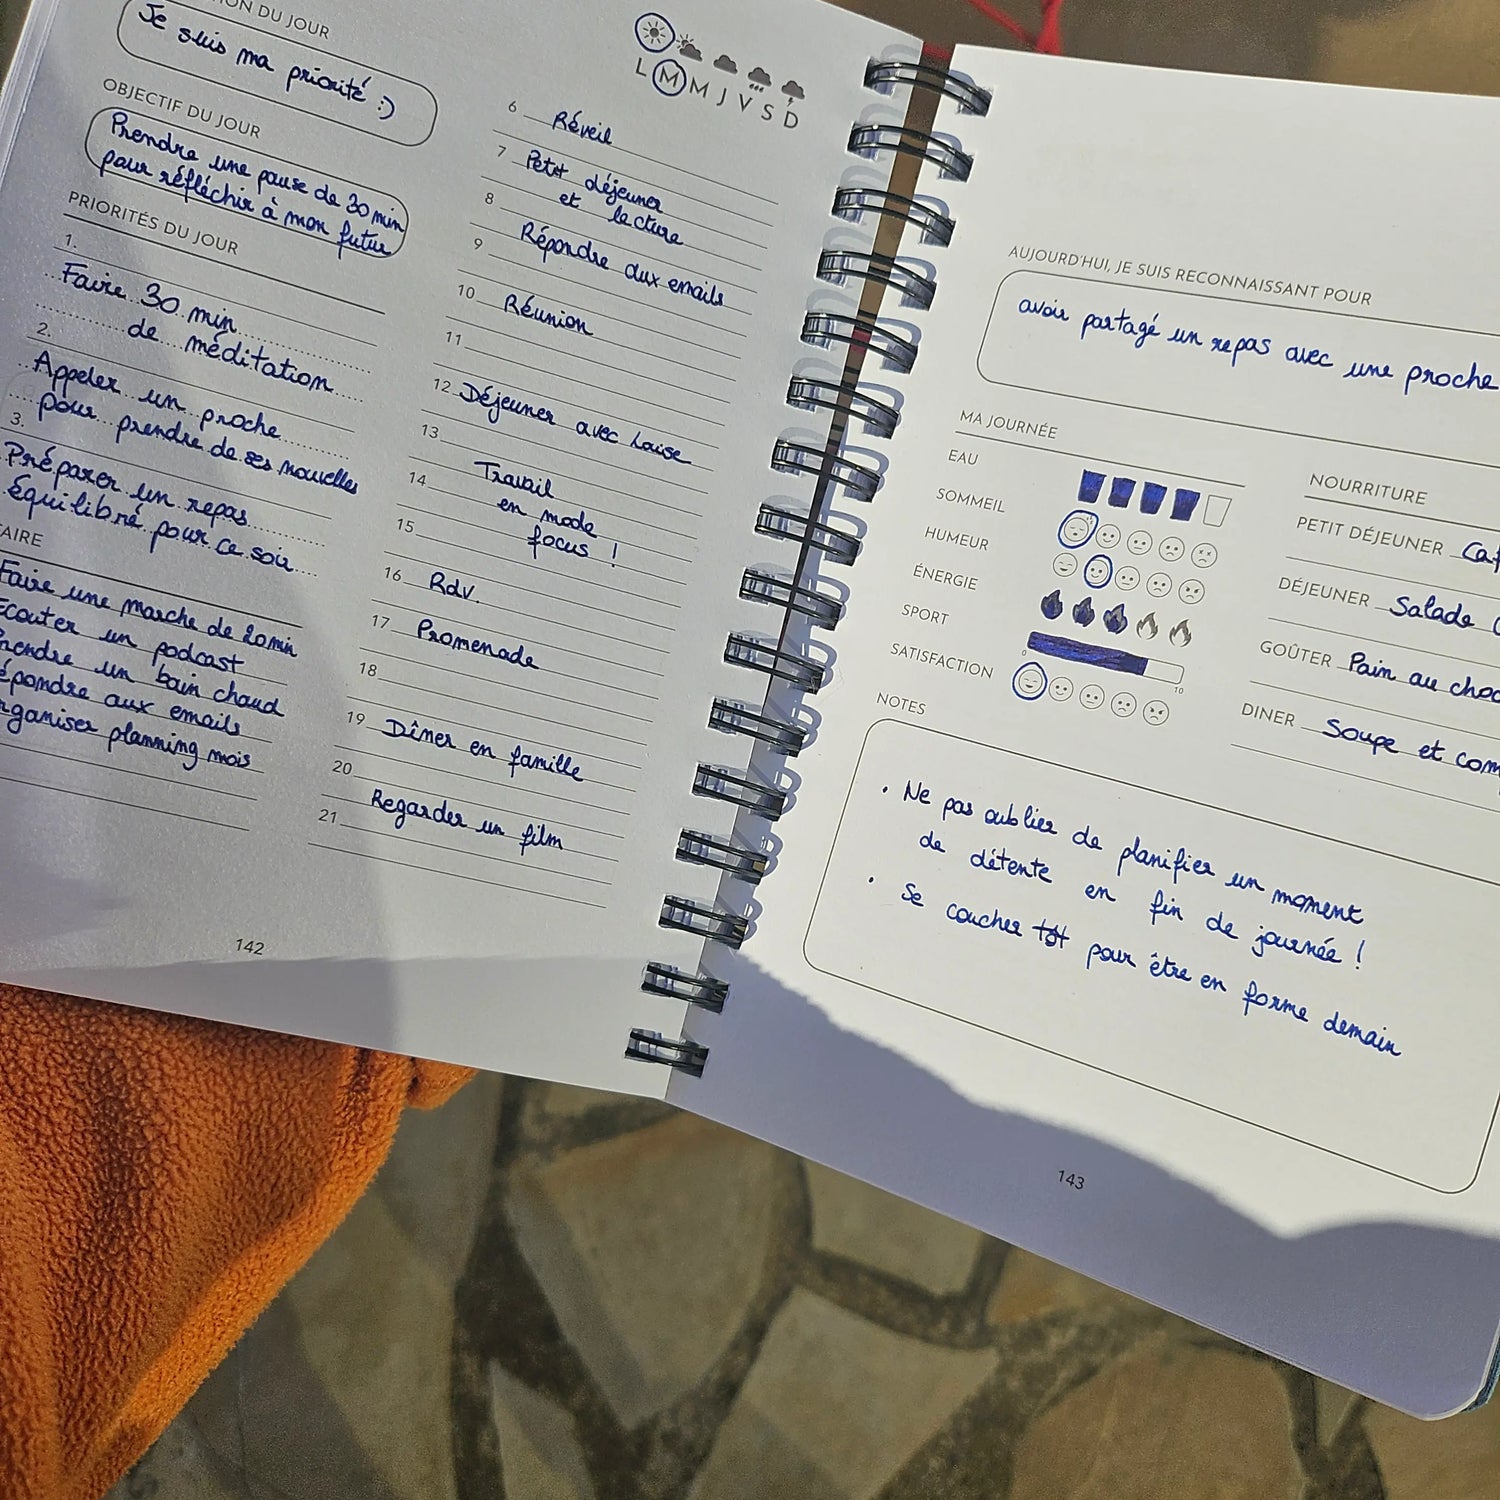 ION DU JOUR
Je suis ma priorité :)
OBJECTIF DU JOUR
Prendre une pause de 30 min
pour réfléchir à mon futur
PRIORITÉS DU JOUR
1.
Faire 30 min
de méditation
2.
Appeler un proche
pour prendre de ses nouvelles
3.
Préparer un repas
équilibré pour ce soir
AIRE
Faire une marche de 20min
Ecouter un podcast
Prendre un bain chaud
épondre aux emails
rganiser planning mois
L M M J V S D
6 Réveil
7 Petit déjeuner
et lecture
8
Répondre aux emails
9
10 Réunion
11
12 Déjeuner avec Louise
13
Travail
14 en mode
focus !
15
16 Rdv
17 Promenade
18
19 Dîner en famille
20
Regarder un film
21
142
AUJOURD'HUI, JE SUIS RECONNAISSANT POUR
avoir partagé un repas avec une proche
MA JOURNÉE
EAU
SOMMEIL
HUMEUR
ÉNERGIE
SPORT
0
10
SATISFACTION
NOURRITURE
PETIT DÉJEUNER Caf
DÉJEUNER Salade
GOÛTER Pain au choc
DINER Soupe et com
NOTES
• Ne pas oublier de planifier un moment
de détente en fin de journée !
• Se coucher tôt pour être en forme demain
143